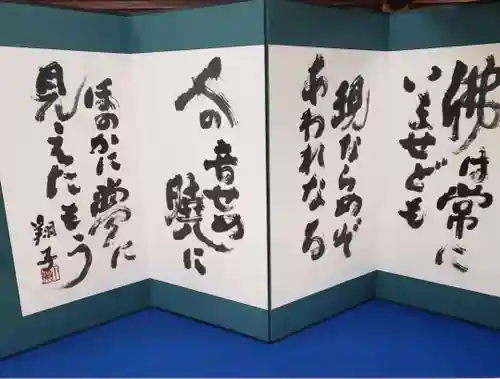 佛は常に
いませども
現ならぬぞ
あわれなる
人の
音せぬ
暁に
ほのかに夢に
見えたもう
翔子